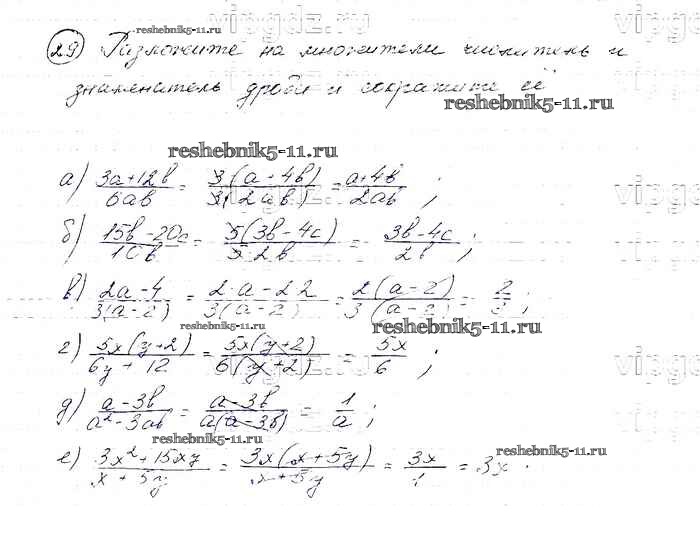 vipgdz.ru
reshebnik5-11.ru
29) Разложите на множители числитель и
знаменатель дроби и сократите её
reshebnik5-11.ru
reshebnik5-11.ru
а) 3a+12b / 6ab = 3(a-4b) / 3(2ab) = a+4b / 2ab ;
vipgdz.ru
б) 15b-20c / 10b = 5(3b-4c) / 5·2b = 3b-4c / 2b ;
в) 2a-4 / 3(a-2) = 2·a-2·2 / 3(a-2) = 2(a-2) / 3(a-2) = 2 / 3 ;
reshebnik5-11.ru
reshebnik5-11.ru
г) 5x(y+2) / 6y+12 = 5x(y+2) / 6(y+2) = 5x / 6 ;
vipgdz.ru
д) a-3b / a²-3ab = a-3b / a(a-3b) = 1 / a ;
reshebnik5-11.ru
reshebnik5-11.ru
е) 3x²+15xy / x+5y = 3x(x+5y) / x+5y = 3x / 1 = 3x .